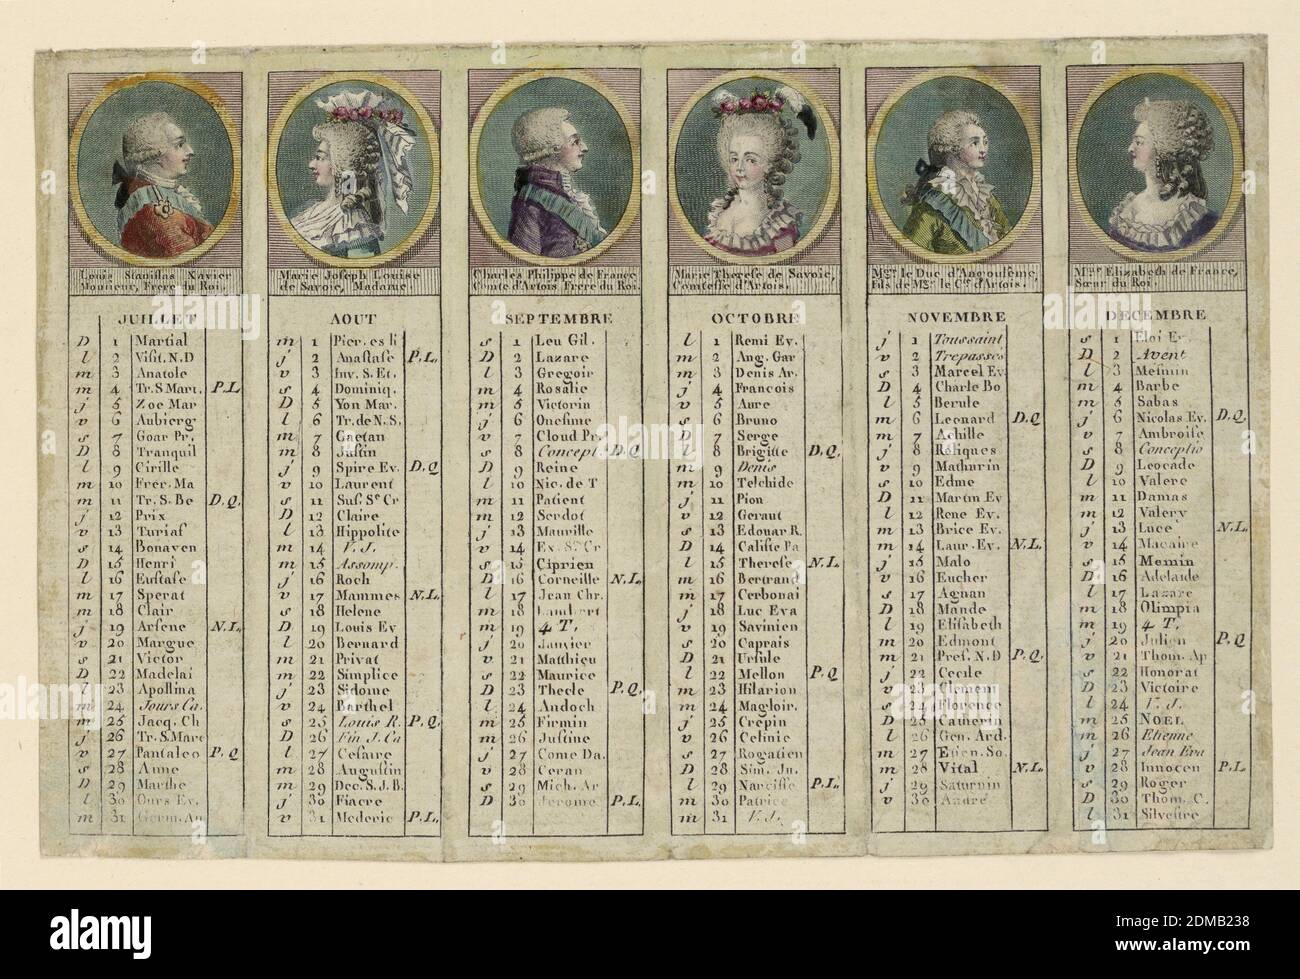 Louis Stanislas Xavier
Monsieur, Frere du Roi.
JUILLET
D 1 Martial
l 2 Visit. N.D
m 3 Anatole
m 4 Tr. S Mart. P.L
j 5 Zoe Mar
v 6 Aubierg
s 7 Goar Pr.
D 8 Tranquil
l 9 Cirille
m 10 Frer. Ma
m 11 Tr. S. Be D.Q.
j 12 Prix
v 13 Turiaf
s 14 Bonaven
D 15 Henri
l 16 Eustase
m 17 Sperat
m 18 Clair
j 19 Arsene N.L.
v 20 Margue
s 21 Victor
D 22 Madelai
l 23 Apollina
m 24 Jours Ca.
m 25 Jacq. Ch
j 26 Tr. S. Marc
v 27 Pantaleo P.Q
s 28 Anne
D 29 Marthe
l 30 Ours Ev.
m 31 Germ. Au
Marie Joseph Louise
de Savoie, Madame.
AOUT
m 1 Pier. es li
j 2 Anastase P.L.
v 3 Inv. S. Et.
s 4 Dominiq.
D 5 Yon Mar.
l 6 Tr. de N. S.
m 7 Gaetan
m 8 Justin
j 9 Spire Ev. D.Q
v 10 Laurent
s 11 Sus. Se Cr
D 12 Claire
l 13 Hippolite
m 14 V. J.
m 15 Assomp.
j 16 Roch
v 17 Mammes N.L.
s 18 Helene
D 19 Louis Ev
l 20 Bernard
m 21 Privat
m 22 Simplice
j 23 Sidoine
v 24 Barthel
s 25 Louis R. P.Q.
D 26 Fin J. Ca
l 27 Cesaire
m 28 Augustin
m 29 Dec. S. J. B.
j 30 Fiacre
v 31 Mederic P.L.
Charles Philippe de France
Comte d'Artois Frere du Roi.
SEPTEMBRE
s 1 Leu Gil.
D 2 Lazare
l 3 Gregoir
m 4 Rosalie
m 5 Victorin
j 6 Onesime
v 7 Cloud Pr.
s 8 Concept. D.Q
D 9 Reine
l 10 Nic. de T
m 11 Patient
m 12 Serdot
j 13 Maurille
v 14 Ex. Ste Cr
s 15 Ciprien
D 16 Corneille N.L.
l 17 Jean Chr.
m 18 Lambert
m 19 4 T.
j 20 Janvier
v 21 Matthieu
s 22 Maurice
D 23 Thecle P.Q.
l 24 Andoch
m 25 Firmin
m 26 Justine
j 27 Come Da.
v 28 Ceran
s 29 Mich. Ar
D 30 Jerome P.L.
Marie Therese de Savoie,
Comtesse d'Artois.
OCTOBRE
l 1 Remi Ev.
m 2 Ang. Gar
m 3 Denis Ar.
j 4 Francois
v 5 Aure
s 6 Bruno
D 7 Serge
l 8 Brigitte D.Q.
m 9 Denis
m 10 Telchide
j 11 Pion
v 12 Geraut
s 13 Edouar R.
D 14 Caliste Pa
l 15 Therese N.L.
m 16 Bertrand
m 17 Cerbonai
j 18 Luc Eva
v 19 Savinien
s 20 Caprais
D 21 Ursule
l 22 Mellon P.Q
m 23 Hilarion
m 24 Magloir.
j 25 Crepin
v 26 Celinie
s 27 Rogatien
D 28 Sim. Ju.
l 29 Narcisse P.L.
m 30 Patrice
m 31 V. J.
Mgr. le Duc d'Angoulême,
Fils de Mgr. le Cte d'Artois.
NOVEMBRE
j 1 Toussaint
v 2 Trepasses
s 3 Marcel Ev.
D 4 Charle Bo
l 5 Berule
m 6 Leonard D.Q
m 7 Achille
j 8 Réliques
v 9 Mathurin
s 10 Edme
D 11 Martin Ev
l 12 Rene Ev.
m 13 Brice Ev.
m 14 Laur. Ev. N.L.
j 15 Malo
v 16 Eucher
s 17 Agnan
D 18 Mande
l 19 Elisabeth
m 20 Edmont
m 21 Pres. N.D P.Q.
j 22 Cecile
v 23 Clement
s 24 Florence
D 25 Catherin
l 26 Gen. Ard.
m 27 Etien. So.
m 28 Vital N.L.
j 29 Saturnin
v 30 André
Mme Elizabeth de France,
Sœur du Roi.
DECEMBRE
s 1 Eloi Ev.
D 2 Avent
l 3 Mesmin
m 4 Barbe
m 5 Sabas
j 6 Nicolas Ev. D.Q.
v 7 Ambroise
s 8 Conceptio
D 9 Leocade
l 10 Valere
m 11 Damas
m 12 Valery
j 13 Luce N.L.
v 14 Macaire
s 15 Memin
D 16 Adelaide
l 17 Lazare
m 18 Olimpia
m 19 4 T.
j 20 Julien P.Q
v 21 Thom. Ap
s 22 Honorat
D 23 Victoire
l 24 V. J.
m 25 NOEL
m 26 Etienne
j 27 Jean Eva
v 28 Innocen P.L
s 29 Roger
D 30 Thom. C.
l 31 Silvestre
alamy
Image ID: 2DMB238
www.alamy.com